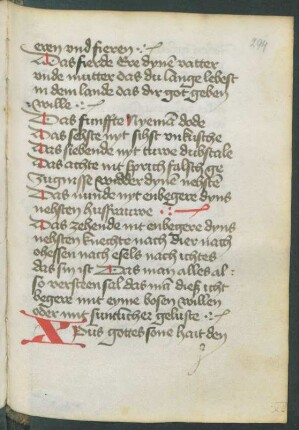 299
eren vnd fieren
Das fierde Ere dynen vatter
vnde mutter das du lange lebest
in dem lande das dir got geben
wille
Das funffte Nyeman dode
Das sehste nyt sihst vnkusche
Das siebende nyt turve dubstale
Das achte nit sprich falsch ge
zugnisse widder dynen nehsten
Das nunde nyt enbegere dyns
nehsten husfrauwe
Das zehende nit enbegere dyns
nehsten knechte nach dier nach
ohessen nach esels nach ichtes
das sin ist Das man alles al-
so versteen sal das man dieß icht
begere mit eyme bosen willen
oder mit suntlicher geluste
Xpus gottes sone hait den